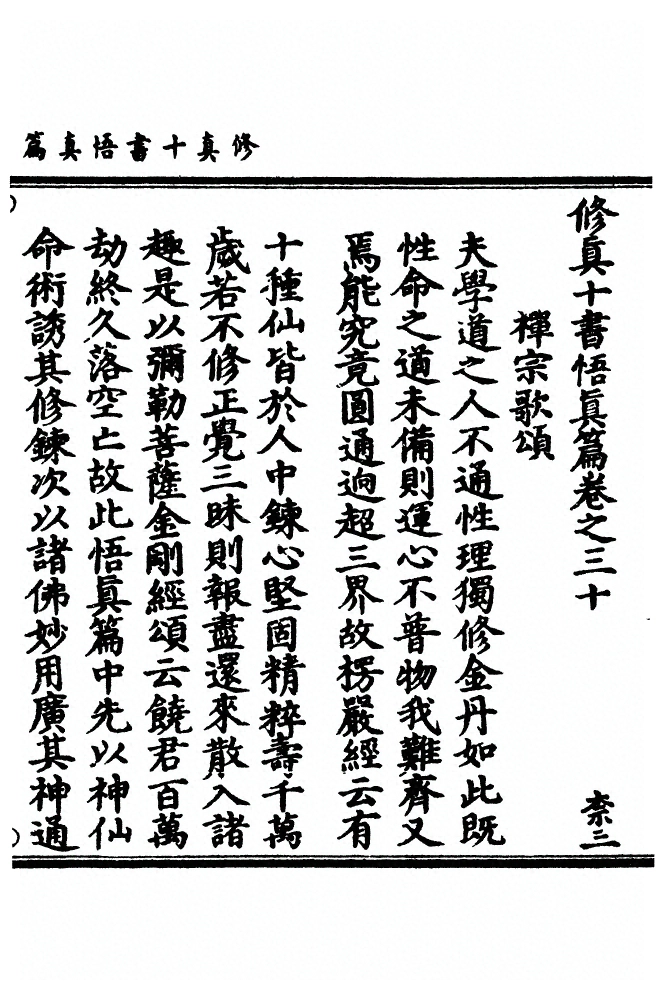 修真十書悟真篇
修真十書悟真篇卷之三十
柰三
禪宗歌頌
夫學道之人不通性理獨修金丹如此既
性命之道未備則運心不普物我難齊又
焉能究竟圓通逈超三界故楞嚴經云有
十種仙皆於人中鍊心堅固精粹壽千萬
歲若不修正覺三昧則報盡還來散入諸
趣是以彌勒菩薩金剛經頌云饒君百萬
劫終久落空亡故此悟真篇中先以神仙
命術誘其修鍊次以諸佛妙用廣其神通